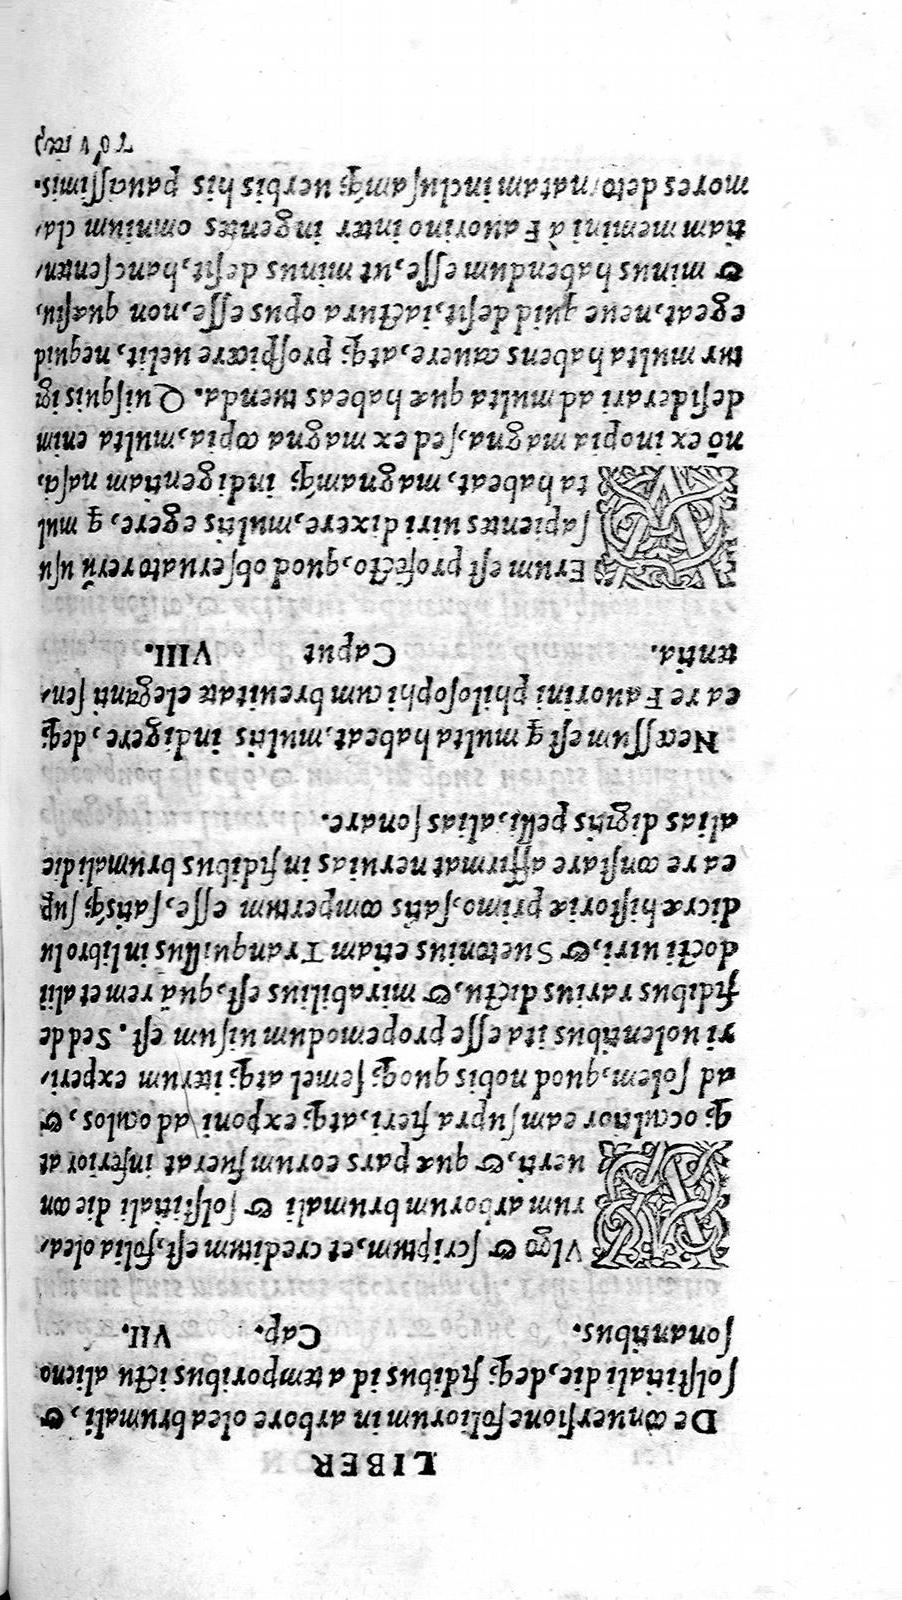 LIBER
De conuersione foliorum in arbore olea brumali, &
solstitiali die, deq; fidibus id a temporibus ictu alieno
sonantibus. Cap. VII.
Vlgo & scriptum, et creditum est, folia olea-
rum arborum brumali & solstitiali die con
uerti, & quæ pars eorum fuerat inferior at
q; occultior eam supra fieri, atq; exponi ad oculos, &
ad solem, quod nobis quoq; semel atq; iterum experi-
ri uolentibus ita esse propemodum uisum est. Sed de
fidibus rarius dictu, & mirabilius est, quā rem et alii
docti uiri, & Suetonius etiam Tranquillus in libro lu
dicræ historiæ primo, satis compertum esse, satisq; sup
ea re constare affirmat neruias in fidibus brumali die
alias digitis pelli, alias sonare.
Necessum est q multa habeat, multis indigere, deq;
ea re Fauorini philosophi cum breuitate eleganti sen-
tentia. Caput VIII.
Erum est profecto, quod obseruato rerū usu
sapientes uiri dixere, multis egere, q mul
ta habeat, magnamq; indigentiam nasci,
nō ex inopia magna, sed ex magna copia, multa enim
desiderari ad multa quæ habeas tuenda. Quisquis igi
tur multa habens cauere, atq; prospicere uelit, nequid
egeat, neue quid desit, iactura opus esse, non quæsitu,
& minus habendum esse, ut minus desit, hanc senten-
tiam memini à Fauorino inter ingentes omnium cla-
mores detornatam inclusamq; uerbis his paucissimis.